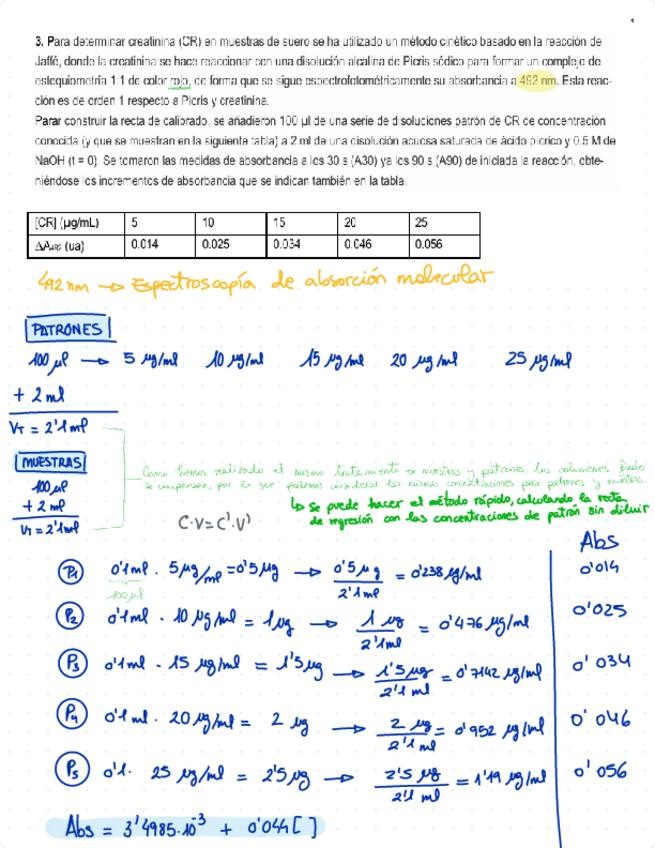 3. Para determinar creatinina (CR) en muestras de suero se ha utilizado un método cinético basado en la reacción de
Jaffé, donde la creatinina se hace reaccionar con una disolución alcalina de Picris sódico para formar un complejo de
estequiometría 1:1 de color rojo, de forma que se sigue espectrofotométricamente su absorbancia a 492 nm. Esta reac-
ción es de orden 1 respecto a Picris y creatinina.
Parar construir la recta de calibrado, se añadieron 100 µl de una serie de disoluciones patrón de CR de concentración
conocida (y que se muestran en la siguiente tabla) a 2 ml de una disolución acuosa saturada de ácido pícrico y 0.5 M de
NaOH (t = 0). Se tomaron las medidas de absorbancia a los 30 s (A30) ya los 90 s (A90) de iniciada la reacción, obte-
niéndose los incrementos de absorbancia que se indican también en la tabla.
[CR] (µg/mL) 5 10 15 20 25
ΔA492 (ua) 0.014 0.025 0.034 0.046 0.056
492 nm → Espectroscopía de absorción molecular
PATRONES
100 µl → 5 µg/ml 10 µg/ml 15 µg/ml 20 µg/ml 25 µg/ml
+ 2 ml
VT = 2'1 ml
MUESTRAS
100 µl
+ 2 ml
VT = 2'1 ml
Como hemos realizado el mismo tratamiento en muestras y patrones los volúmenes finales
se compensan, por lo que podemos considerar las mismas concentraciones para patrones y muestras
↳ Se puede hacer el método rápido, calculando la recta
de regresión con las concentraciones de patrón sin diluir
C·V=C'·V'
Abs
P1 0'1 ml · 5 µg/ml = 0'5 µg → 0'5 µg / 2'1 ml = 0'238 µg/ml 0'014
100 µl
P2 0'1 ml · 10 µg/ml = 1 µg → 1 µg / 2'1 ml = 0'476 µg/ml 0'025
P3 0'1 ml · 15 µg/ml = 1'5 µg → 1'5 µg / 2'1 ml = 0'7142 µg/ml 0'034
P4 0'1 ml · 20 µg/ml = 2 µg → 2 µg / 2'1 ml = 0'952 µg/ml 0'046
P5 0'1 · 25 µg/ml = 2'5 µg → 2'5 µg / 2'1 ml = 1'19 µg/ml 0'056
Abs = 3'4985·10⁻³ + 0'044 [ ]